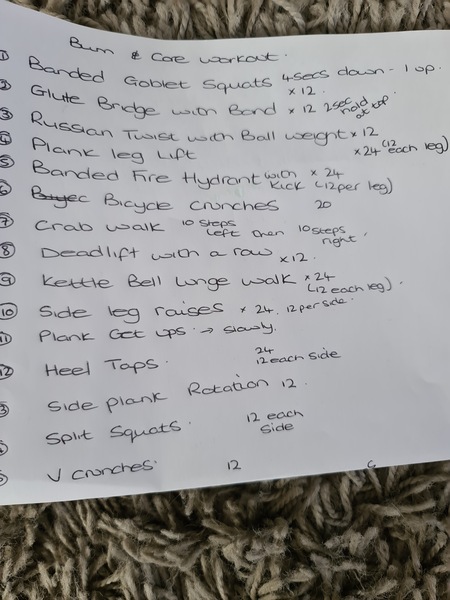 Bum & Core workout.
① Banded Goblet Squats 4secs down - 1 up.
× 12.
② Glute Bridge with Band × 12 2sec hold at top.
③ Russian Twist with Ball weight × 12
④ Plank leg Lift × 24 (12 each leg)
⑤ Banded Fire Hydrant with kick × 24 (12 per leg)
⑥ Bicycle crunches 20
⑦ Crab walk 10 steps left then 10 steps right.
⑧ Deadlift with a row × 12.
⑨ Kettle Bell Lunge walk × 24 (12 each leg).
⑩ Side leg raises × 24. 12 per side.
⑪ Plank Get ups. → slowly.
12 Heel Taps. 24 12 each side
3 Side plank Rotation 12.
Split Squats. 12 each side
V crunches 12